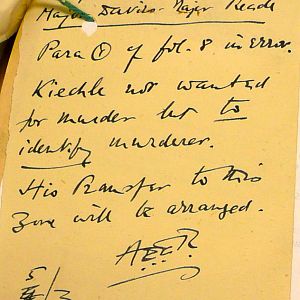 Major Davies - Major Reade
Para ① of fol. 8 in error.
Kiechle not wanted
for murder but to
identify murderer.
His transfer to this
Zone will be arranged.